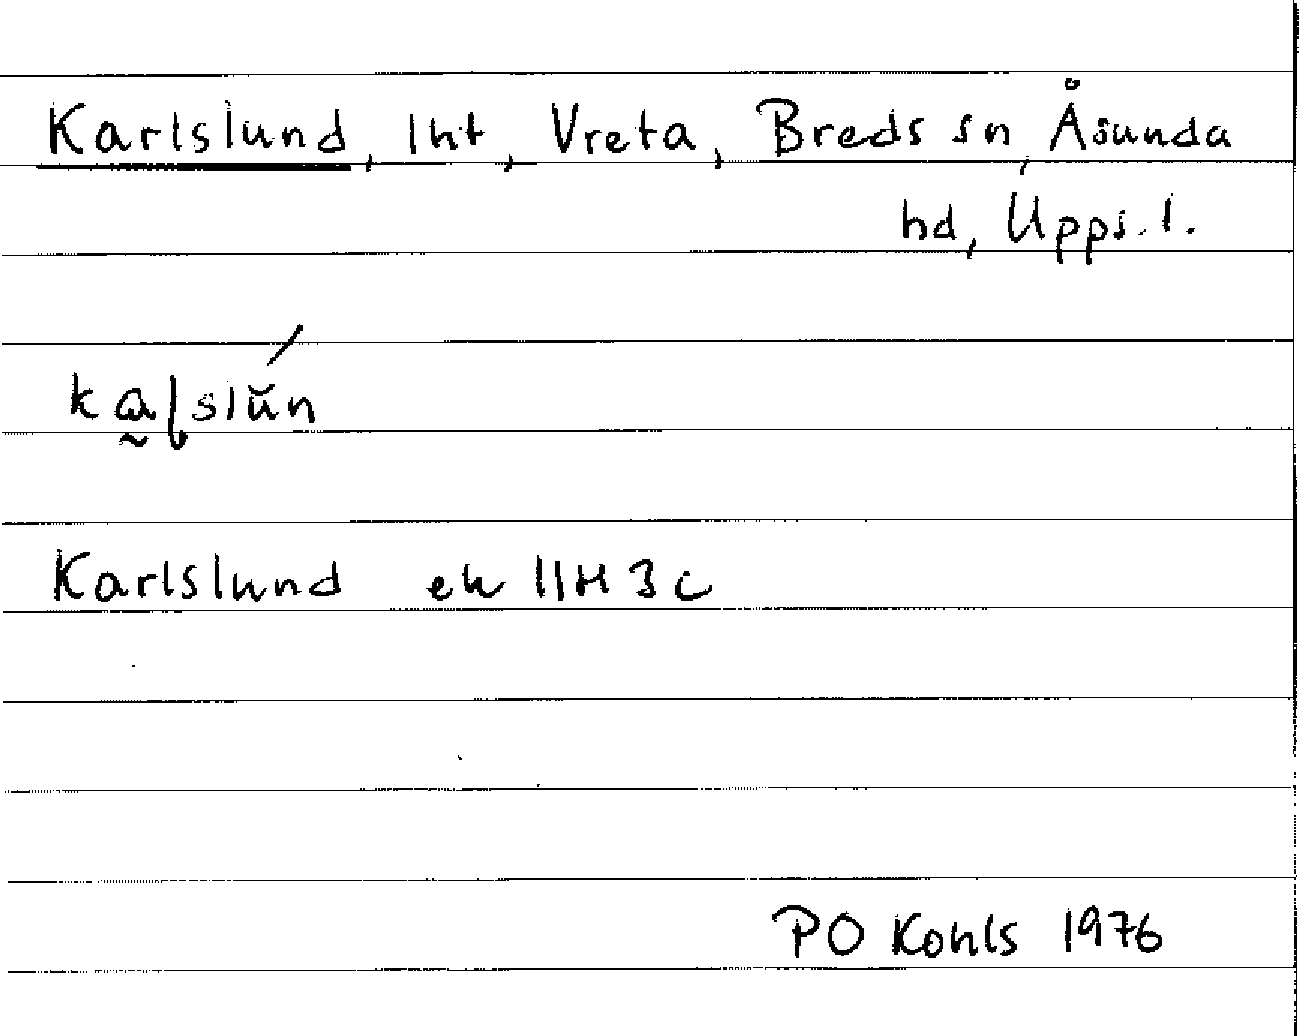 Karlslund, lht, Vreta, Breds sn, Åsunda
hd, Upps. l.
Karlslund ek 11H 3c
PO Kohls 1976